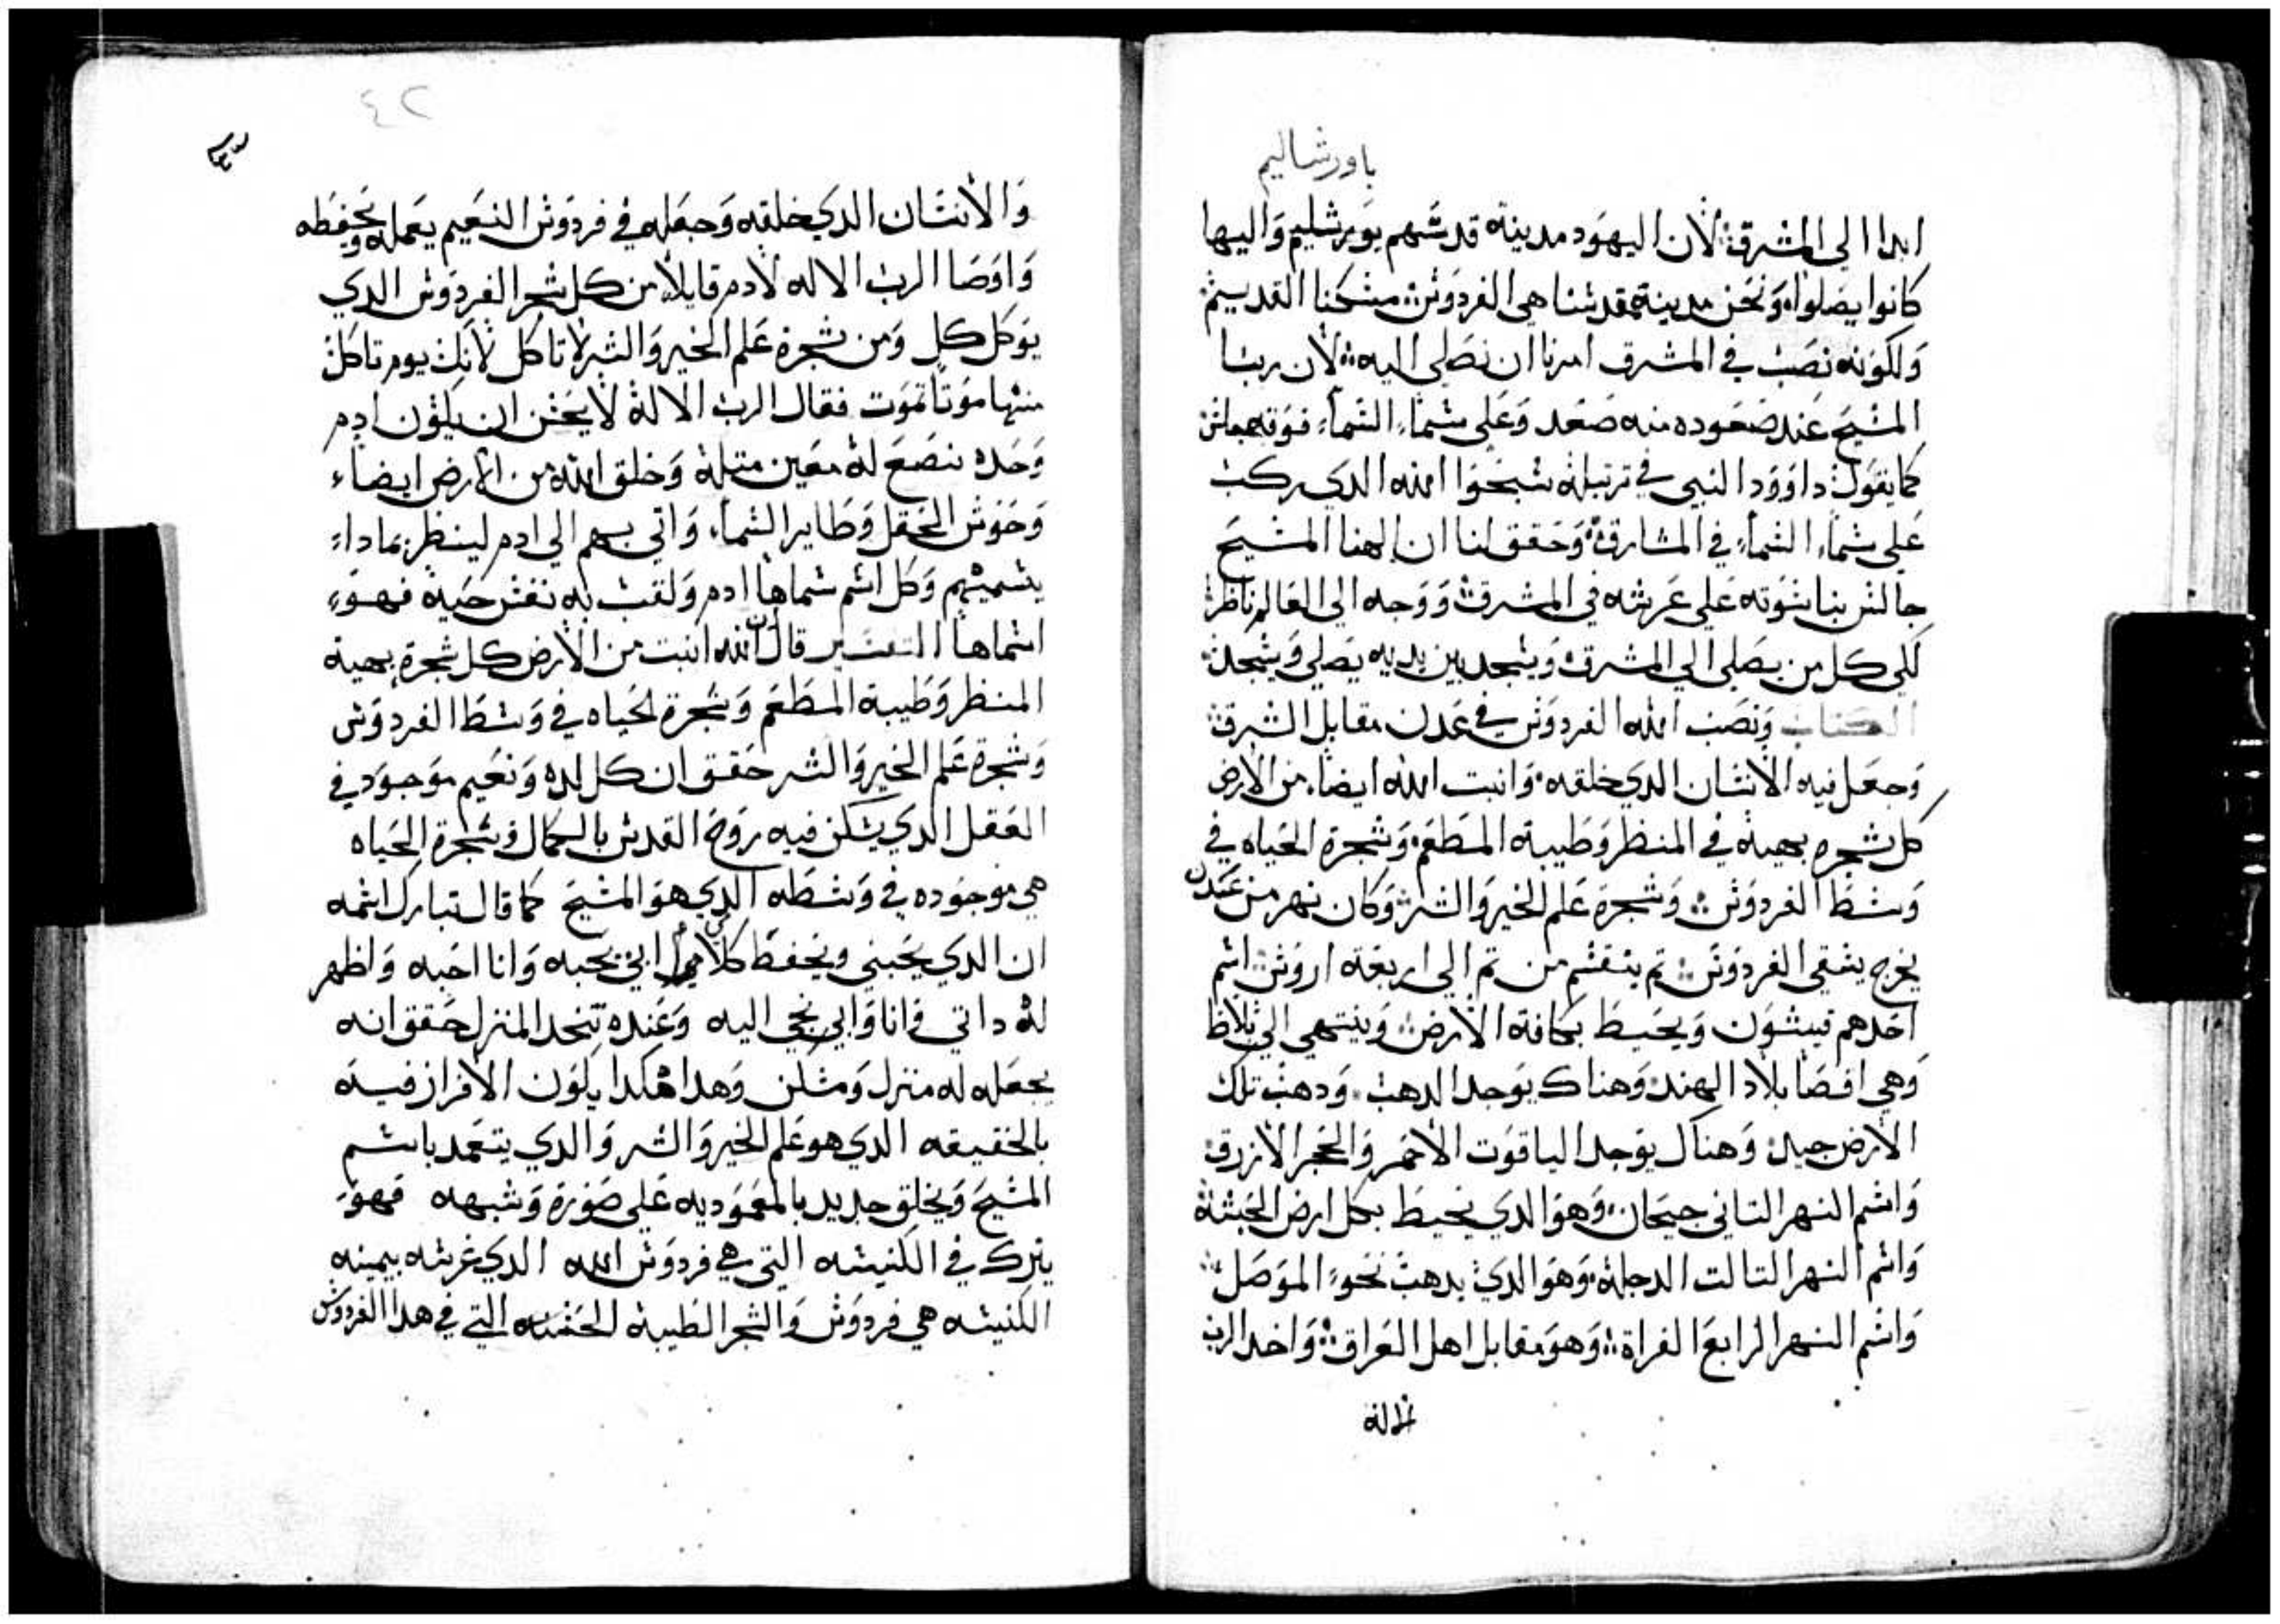 باورشاليم
ابدا الي المشرق لان اليهود مدينة قدسهم يورشليم واليها
كانوا يصلوا ونحن مدينة قدسنا هي الفردوس مسكنا القديم
ولكونه نصب في المشرق امرنا ان نصلي اليه لان ربنا
المسيح عند صعوده منه صعد وعلي سماء السماء فوقه جالس
كما يقول داوود النبي في ترتيله سبحوا الله الدي ركب
علي سماء السماء في المشارق وحقق لنا ان الهنا المسيح
جالس بناسوته علي عرشه في المشرق ووجه الي العالم ناظر
لكي كل من يصلي الي المشرق ويسجد بين يديه يصلي ويسجد
الكتاب ونصب الله الفردوس في عدن مقابل الشرق
وجعل فيه الانسان الدي خلقه وانبت الله ايضا من الارض
كل شجره بهيه في المنظر وطيبة المطعم وشجرة الحياه في
وسط الفردوس وشجرة علم الخير والشر وكان نهر من عدن
يخرج يسقي الفردوس تم ينقسم من تم الي اربعة اروس اسم
احدهم فيشون ويحيط بكافة الارض وينتهي الي
وهي اقصا بلاد الهند وهناك يوجد الدهب ودهب تلك
الارض جيد وهناك يوجد الياقوت الاحمر والحجر الازرق
واسم النهر التاني جيحان وهو الدي يحيط بكل ارض الحبشة
واسم النهر التالت الدجلة وهو الدي يدهب نحو الموصل
واسم النهر الرابع الفراة وهو مقابل اهل العراق واخد الرب
الاله
٤٢
والانسان الدي خلقه وجعله في فردوس النعيم يعمله ويحفظه
واوصا الرب الاله لادم قايلا من كل شجر الفردوس الدي
يوكل كل ومن شجرة علم الخير والشر لا تاكل لانك يوم تاكل
منها موتا تموت فقال الرب الاله لا يحسن ان يكون ادم
وحده نصنع له معين متله وخلق الله من الارض ايضاء
وحوش الحقل وطاير السماء واتي بهم الي ادم لينظر بماداء
يسميهم وكل اسم سماها ادم ولقب به نفس حية فهو
اسماها التفسير قال ان الله انبت من الارض كل شجرة بهية
المنظر وطيبة المطعم وشجرة الحياه في وسط الفردوس
وشجرة علم الخير والشر حقق ان كل لده ونعيم موجود في
العقل الدي يسكن فيه روح القدس بالكمال وشجرة الحياه
هي موجوده في وسطه الدي هو المسيح كما قال تبارك اسمه
ان الدي يحبني ويحفظ كلامي ابي يحبه وانا احبه واظهر
له داتي فانا وابي نجي اليه وعنده نتخد المنزل حقق انه
يجعله له منزل ومسكن وهدا هكدا يكون الافراز فيه
بالحقيقه الدي هو علم الخير والشر والدي يتعمد باسم
المسيح ويخلق جديد بالمعموديه علي صورة وشبهه فهو
يترك في الكنيسه التي هي فردوس الله الدي غرسه بيمينه
الكنيسه هي فردوس والشجر الطيبة الحسنه التي في هدا الفردوس